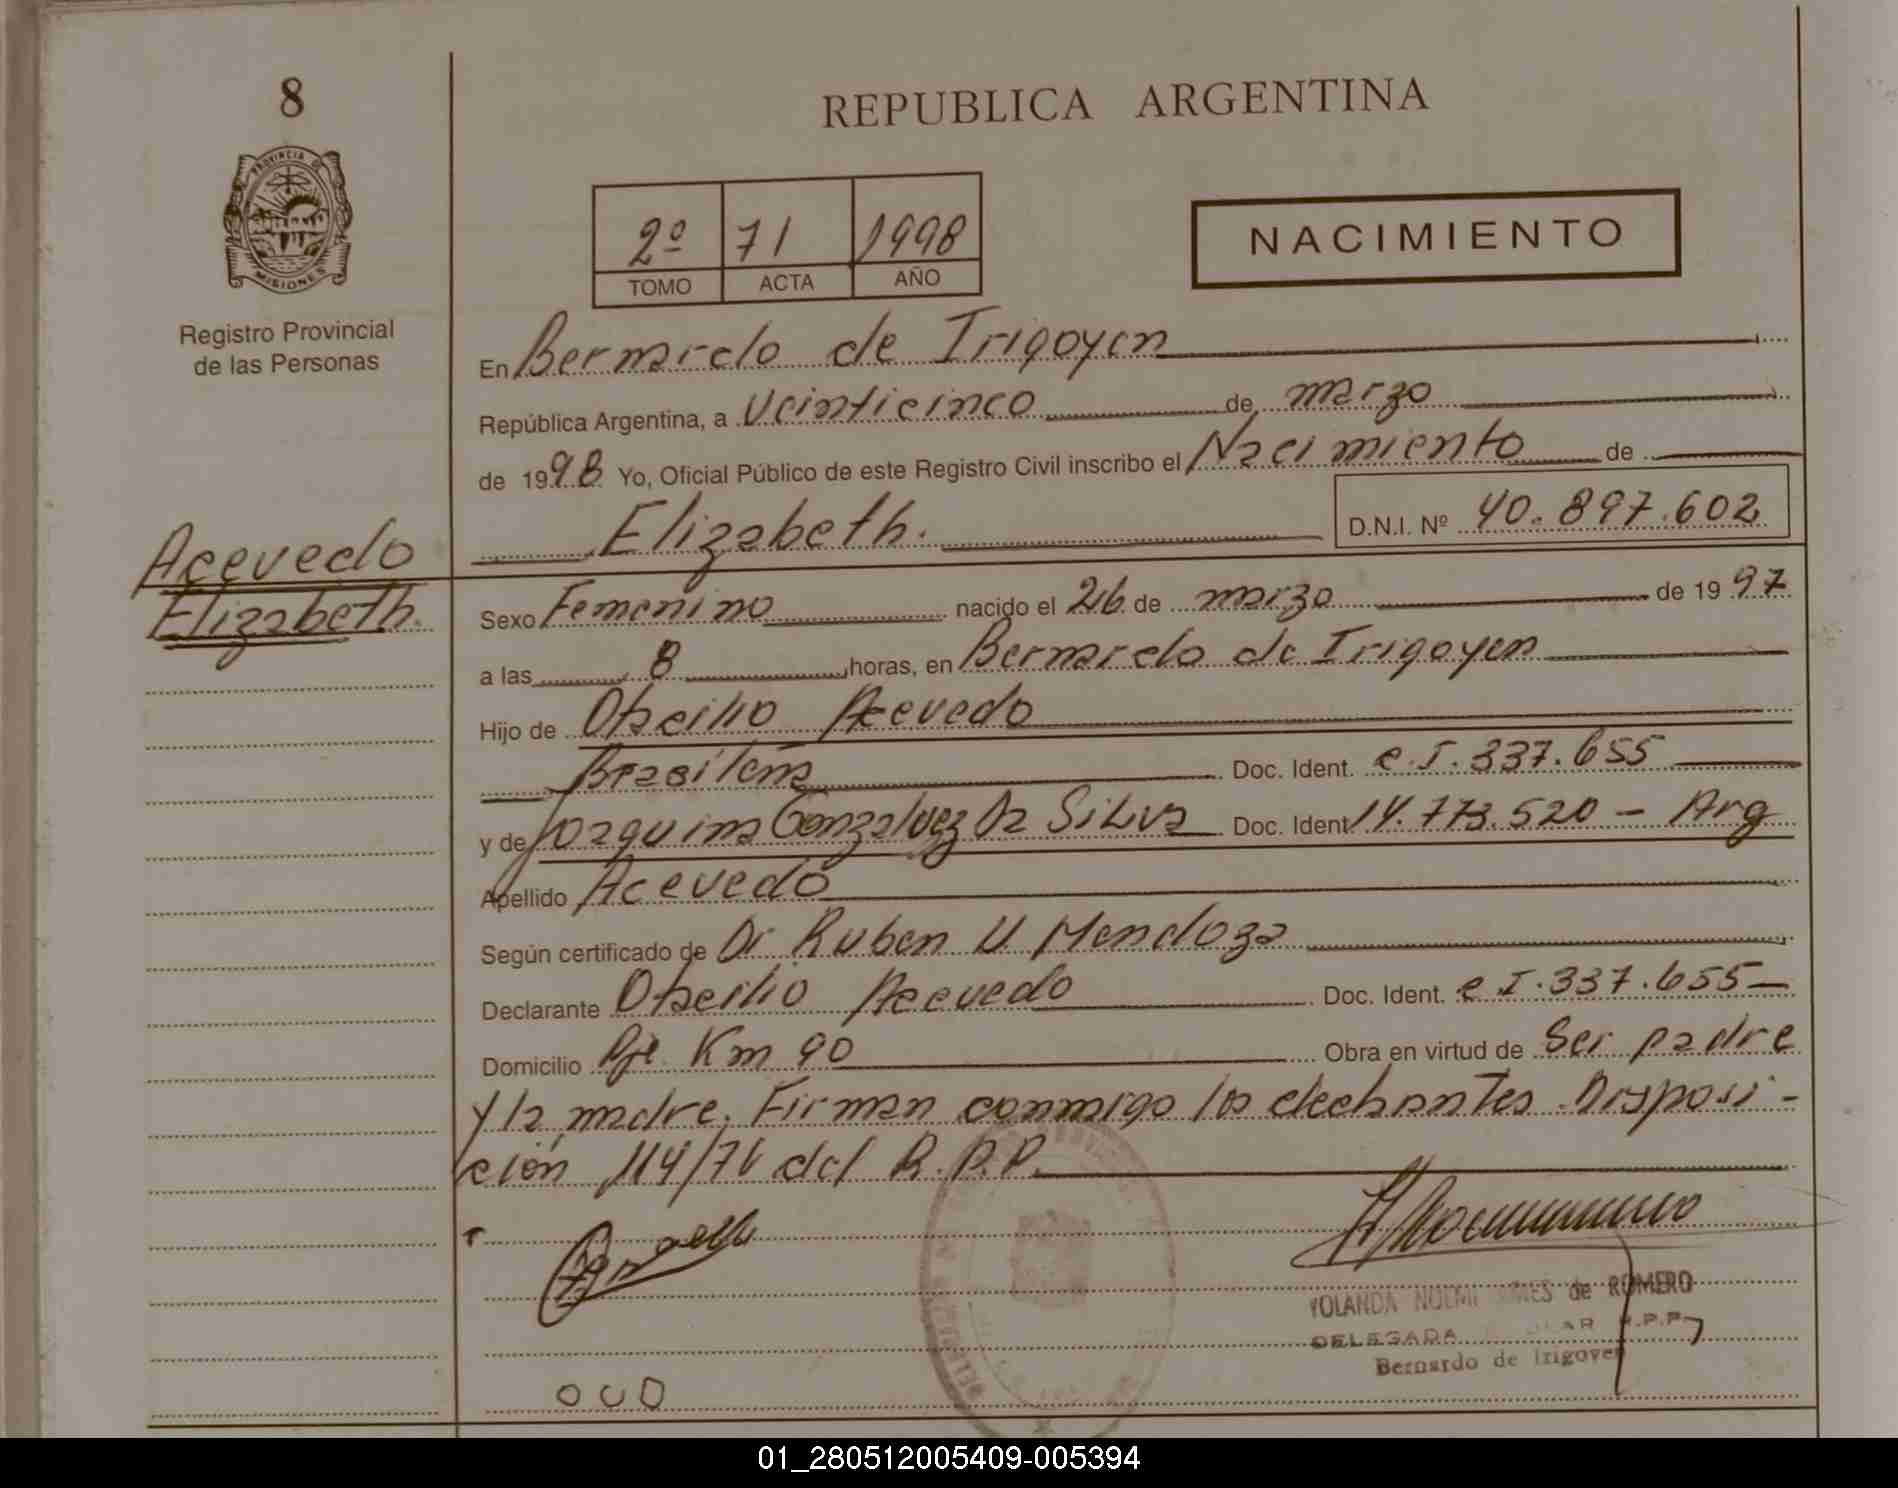 8
REPUBLICA ARGENTINA
PROVINCIA DE
MISIONES
Registro Provincial
de las Personas
2º 71 1998
TOMO ACTA AÑO
NACIMIENTO
En Bernardo de Irigoyen
República Argentina, a veinticinco de marzo
de 1998 Yo, Oficial Público de este Registro Civil inscribo el Nacimiento de
Elizabeth. D.N.I. Nº 40.897.602
Acevedo
Elizabeth.
Sexo Femenino nacido el 26 de marzo de 1997
a las 8 horas, en Bernardo de Irigoyen
Hijo de Acevedo
Brasileña Doc. Ident. C.I. 337.655
y de Joaquina Gonzalvez Da Silva Doc. Ident 14.773.520 - Arg
Apellido Acevedo
Según certificado de Dr Ruben U Mendoza
Declarante Acevedo Doc. Ident. C.I. 337.655
Domicilio Pje Km 90 Obra en virtud de Ser padre
y la madre. Firman conmigo los declarantes Disposi-
ción 114/76 del R.P.P.
YOLANDA NOEMI de ROMERO
DELEGADA R.P.P.
Bernardo de Irigoyen
01_280512005409-005394